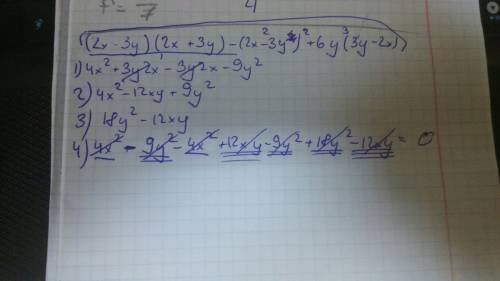 P = — 7 4
(2x-3y)(2x+3y)-(2x²-3y)²+6y³(3y-2x)
1) 4x²+3y2x-3y2x-9y²
2) 4x²-12xy+9y²
3) 18y²-12xy
4) 4x²-9y²-4x²+12xy-9y²+18y²-12xy=0